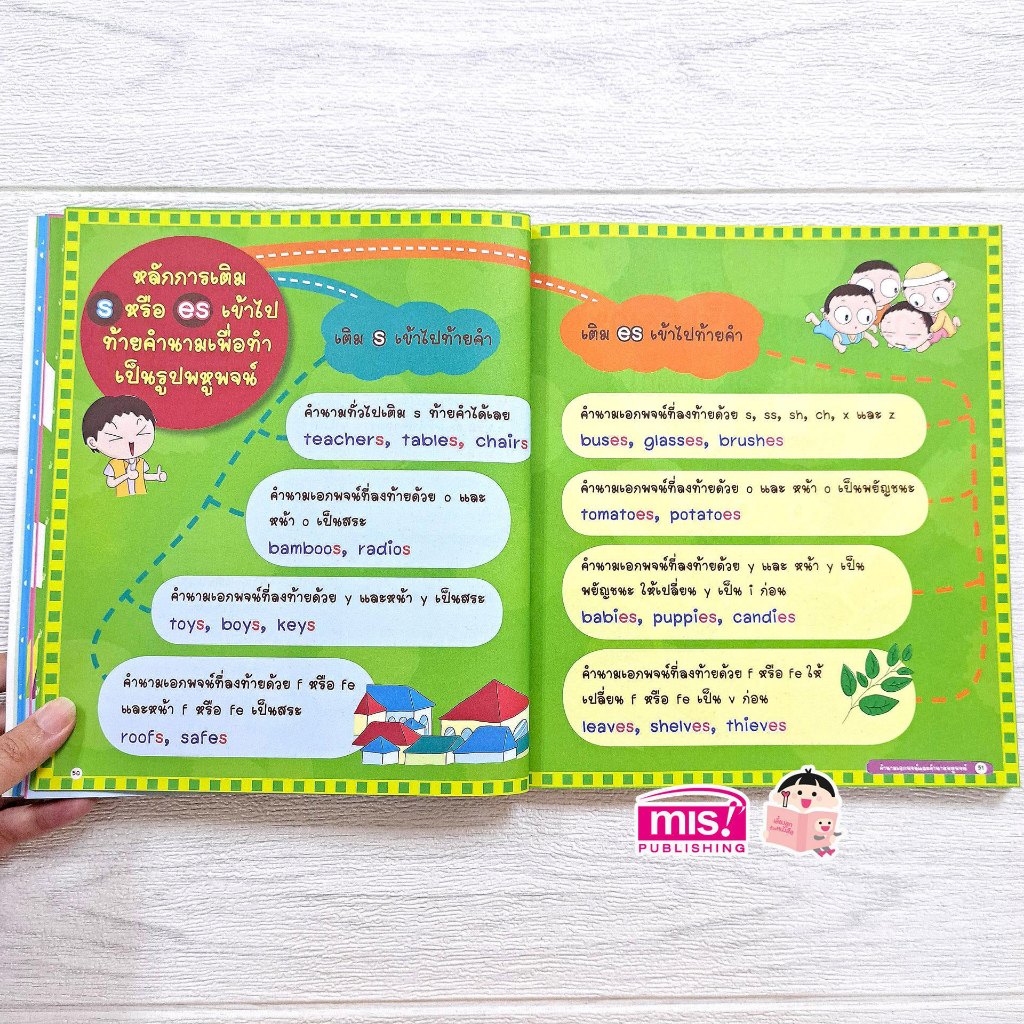 หลักการเติม
s หรือ es เข้าไป
ท้ายคำนามเพื่อทำ
เป็นรูปพหูพจน์
เติม s เข้าไปท้ายคำ
คำนามทั่วไปเติม s ท้ายคำได้เลย
teachers, tables, chairs
คำนามเอกพจน์ที่ลงท้ายด้วย o และ
หน้า o เป็นสระ
bamboos, radios
คำนามเอกพจน์ที่ลงท้ายด้วย y และหน้า y เป็นสระ
toys, boys, keys
คำนามเอกพจน์ที่ลงท้ายด้วย f หรือ fe
และหน้า f หรือ fe เป็นสระ
roofs, safes
50
เติม es เข้าไปท้ายคำ
คำนามเอกพจน์ที่ลงท้ายด้วย s, ss, sh, ch, x และ z
buses, glasses, brushes
คำนามเอกพจน์ที่ลงท้ายด้วย o และ หน้า o เป็นพยัญชนะ
tomatoes, potatoes
คำนามเอกพจน์ที่ลงท้ายด้วย y และ หน้า y เป็น
พยัญชนะ ให้เปลี่ยน y เป็น i ก่อน
babies, puppies, candies
คำนามเอกพจน์ที่ลงท้ายด้วย f หรือ fe ให้
เปลี่ยน f หรือ fe เป็น v ก่อน
leaves, shelves, thieves
คำนามเอกพจน์และคำนามพหูพจน์ 51
mis!
PUBLISHING
เลี้ยงลูก
ด้วยหนังสือ